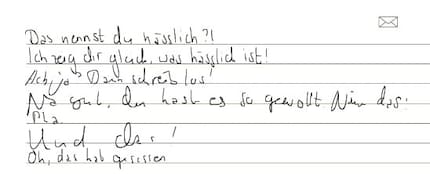 Das nennst du hässlich?!
Ich zeig dir gleich, was hässlich ist!
Ach ja? Dann schreib los!
Na gut, du hast es so gewollt Nim das:
Pla
Und das!
Oh, das hab gesessen